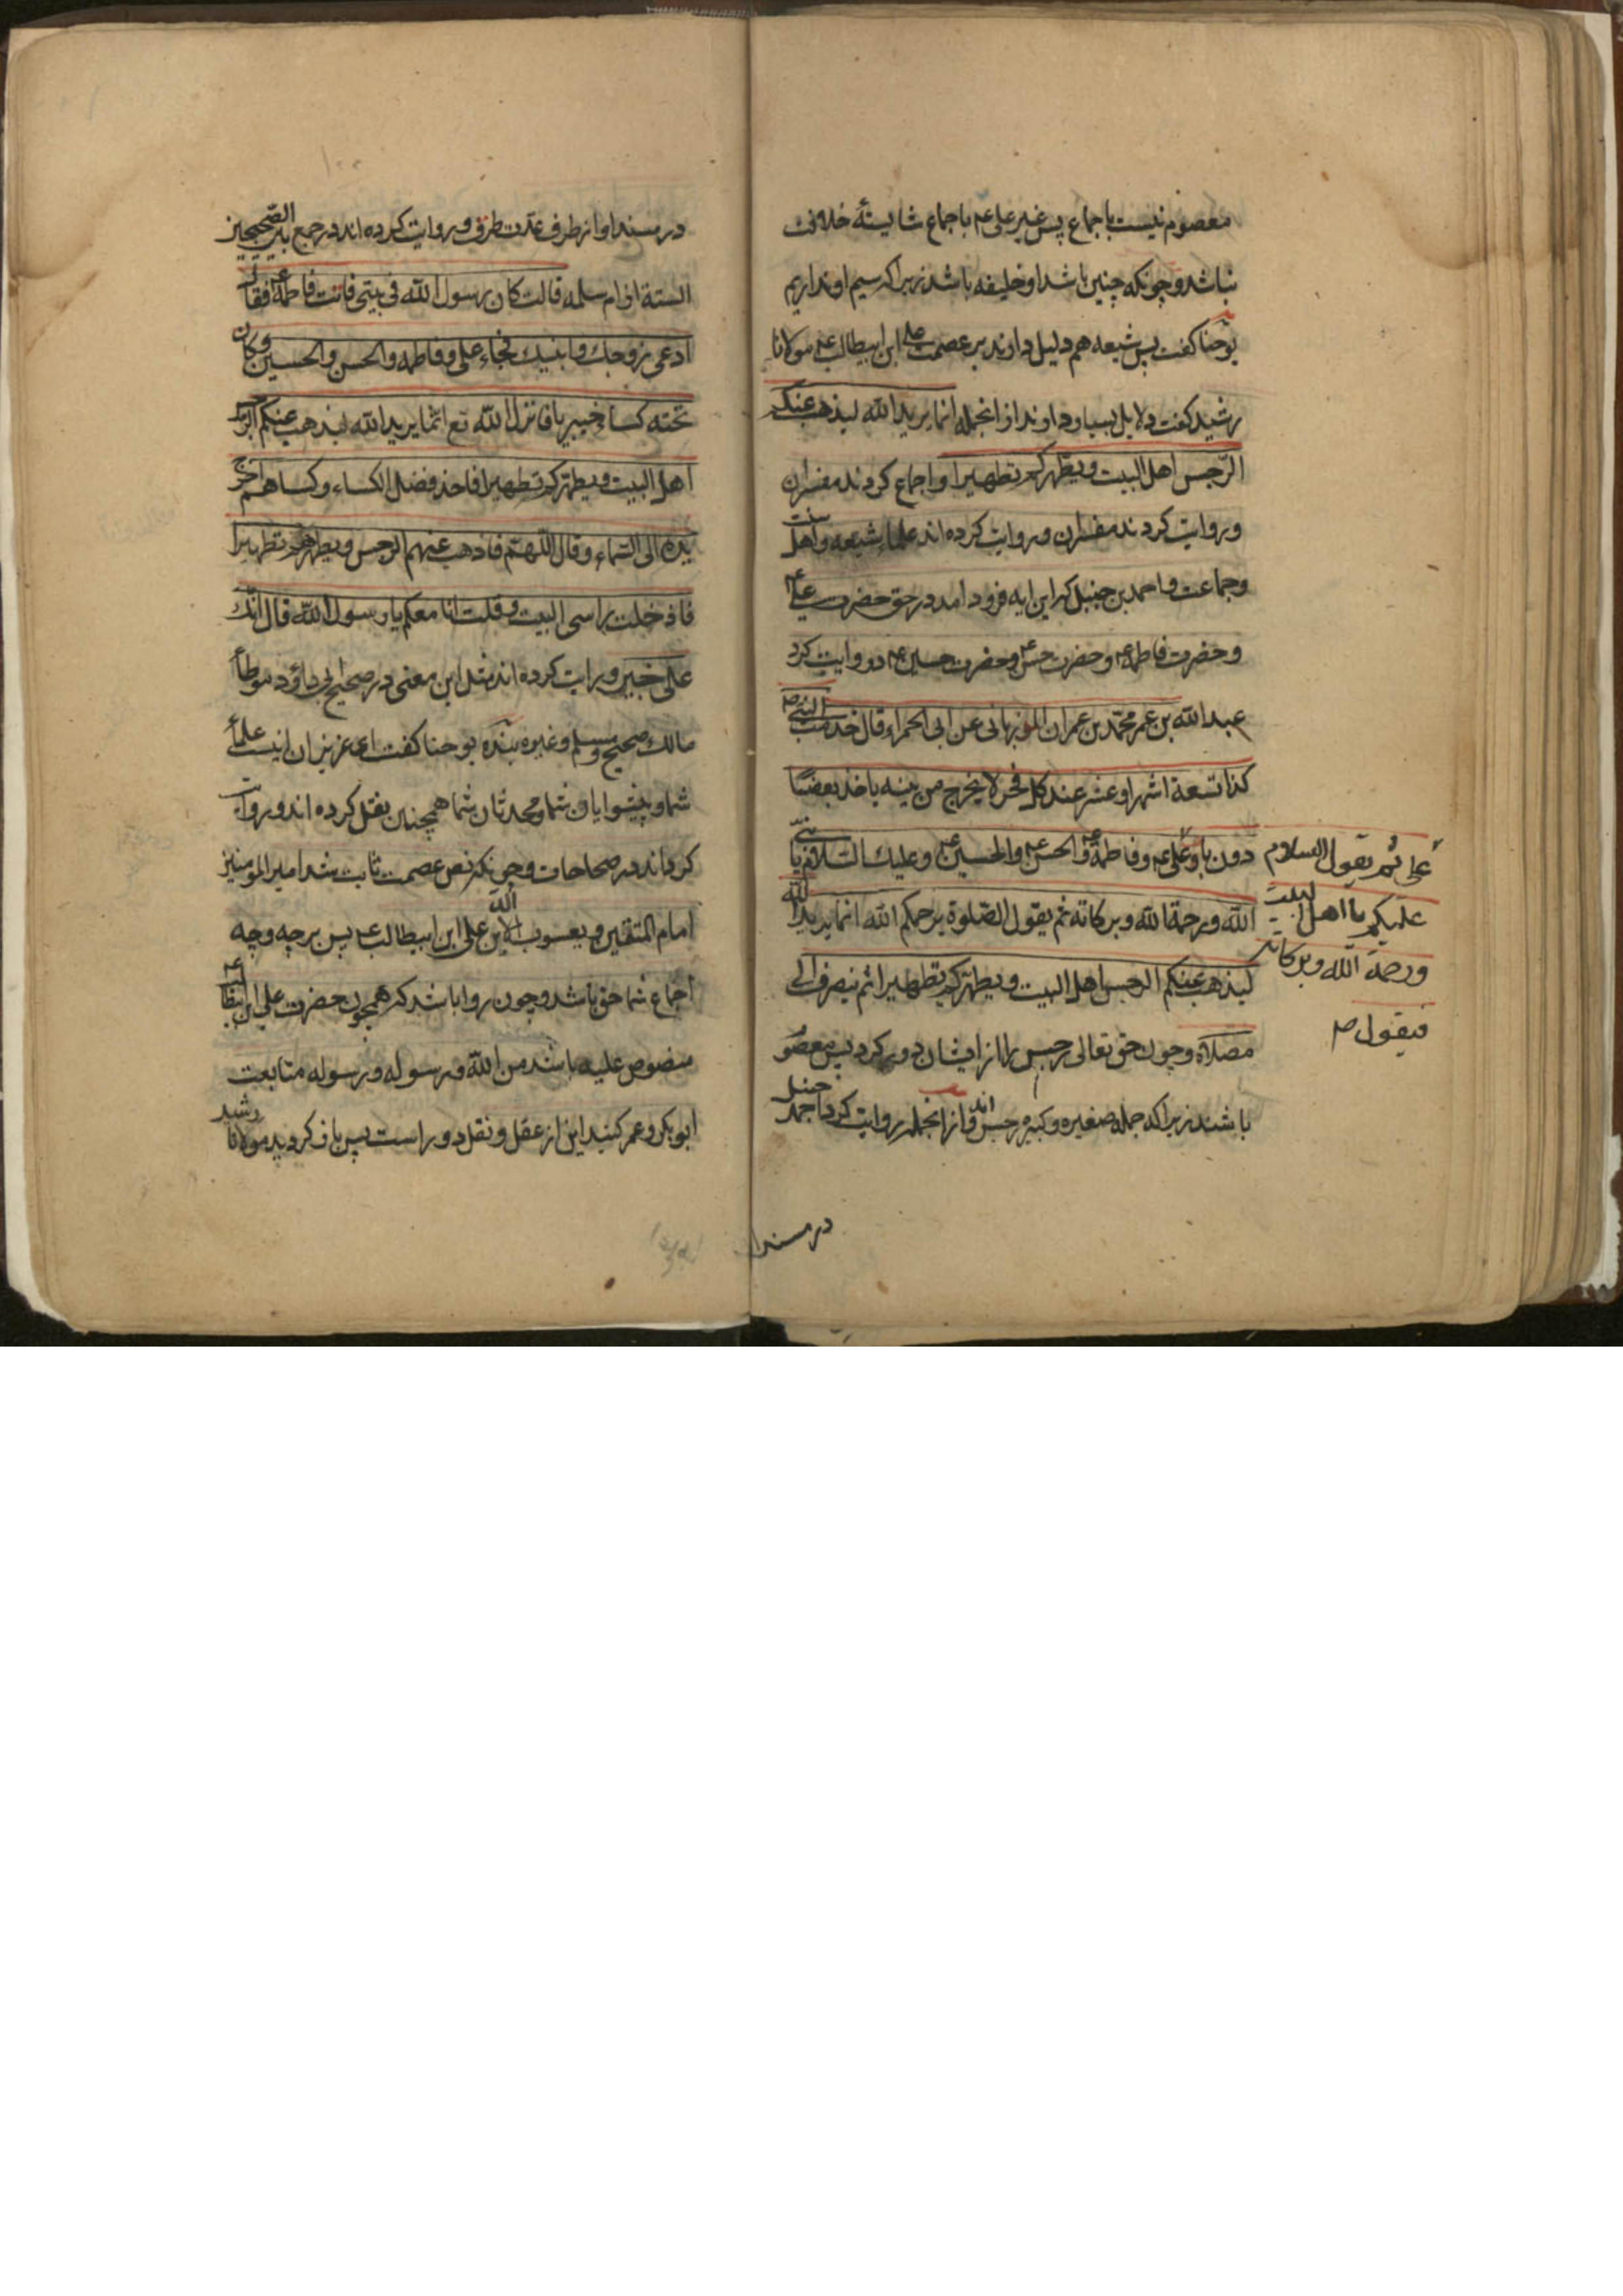 معصوم نیست باجماع پس غیر علی ع م باجماع شایستهٔ خلافت
نباشد و چونکه چنین باشد او خلیفه باشد زیرا که سیم او نداریم
یوحنا کفت پس شیعه هم دلیل دارند بر عصمت علی ابن ابیطالب ع م مولانا
رشید کفت دلایل بسیار دارند از انجمله انما یرید الله لیذهب عنکم
الرّجس اهل البیت و یطهّرکم تطهیرا و اجماع کردند مفسران
و روایت کردند مفسران و روایت کرده اند علمای شیعه و اهل سنت
و جماعت و احمد بن حنبل که این ایه فرود امد در حق حضرت علی ع م
و حضرت فاطمه ع م و حضرت حسن ع م و حضرت حسین ع م و روایت کرد
عبد الله بن عمر محمّد بن عمران المرزبانی عن ابی الحمراء قال خدمت النبی ص
کذا تسعة اشهر او عشر عند کل فجر لا یخرج من بیته یاخذ بعضتا
دون باب علی ع م و فاطمة ع م و الحسن ع م و الحسین ع م و علیک السّلام یا نبیّ
علی ثم یقول السلام
علیکم یا اهل البیت
و رحمة الله و برکاته
فیقول ص
الله و رحمة الله و برکاته ثم یقول الصّلوة یرحمکم الله انما یرید الله
لیذهب عنکم الرجس اهل البیت و یطهّرکم تطهیرا ثم ینصرف الی
مصلاه و چون حق تعالی رجس را از ایشان دور کرد پس معصوم
باشند زیرا که جمله صغیره و کبیره رجس اند و از انجمله روایت کرد احمد حنبل
در مسند
در مسند او از طرف عدّت طرق و روایت کرده اند در جمع بین الصّحیحین
السّتة از ام سلمه قالت کان رسول الله فی بیتی فاتت فاطمة ع م فقال
ادعی زوجک و ابنیک فجاء علی و فاطمه و الحسن و الحسین و کان
تحته کساء خیبریا فانزل الله تع انّما یرید الله لیذهب عنکم الرّجس
اهل البیت و یطهّرکم تطهیرا فاخذ فضل الکساء و کساهم اخرج
یده الی السّماء و قال اللّهمّ فاذهب عنهم الرجس و یطهرهم تطهیرا
فادخلت راسی البیت و قلت انا معکم یا رسول الله قال انّک
علی خیر و روایت کرده اند مثل این معنی در صحیح ابی داؤد و موطأ
مالک و صحیح مسلم و غیره بنده یوحنا کفت ای عزیزان اینست علمأ
شما و پیشوایان شما و محدثان شما همچنین نقل کرده اند و روایت
کرده اند در صحاحات و چونکه نص عصمت ثابت شد امیر المومنین
امام المتقین و یعسوب الدین علی ابن ابیطالب ع م پس بر چه وجه
اجماع شما حق باشد و چون روا باشد که همچون حضرت علی ابن ابیطالب ع م
منصوص علیه باشد من الله و رسوله و رسوله متابعت
ابو بکر و عمر کنید این از عقل و نقل دور است پس باز کردید مولانا رشید